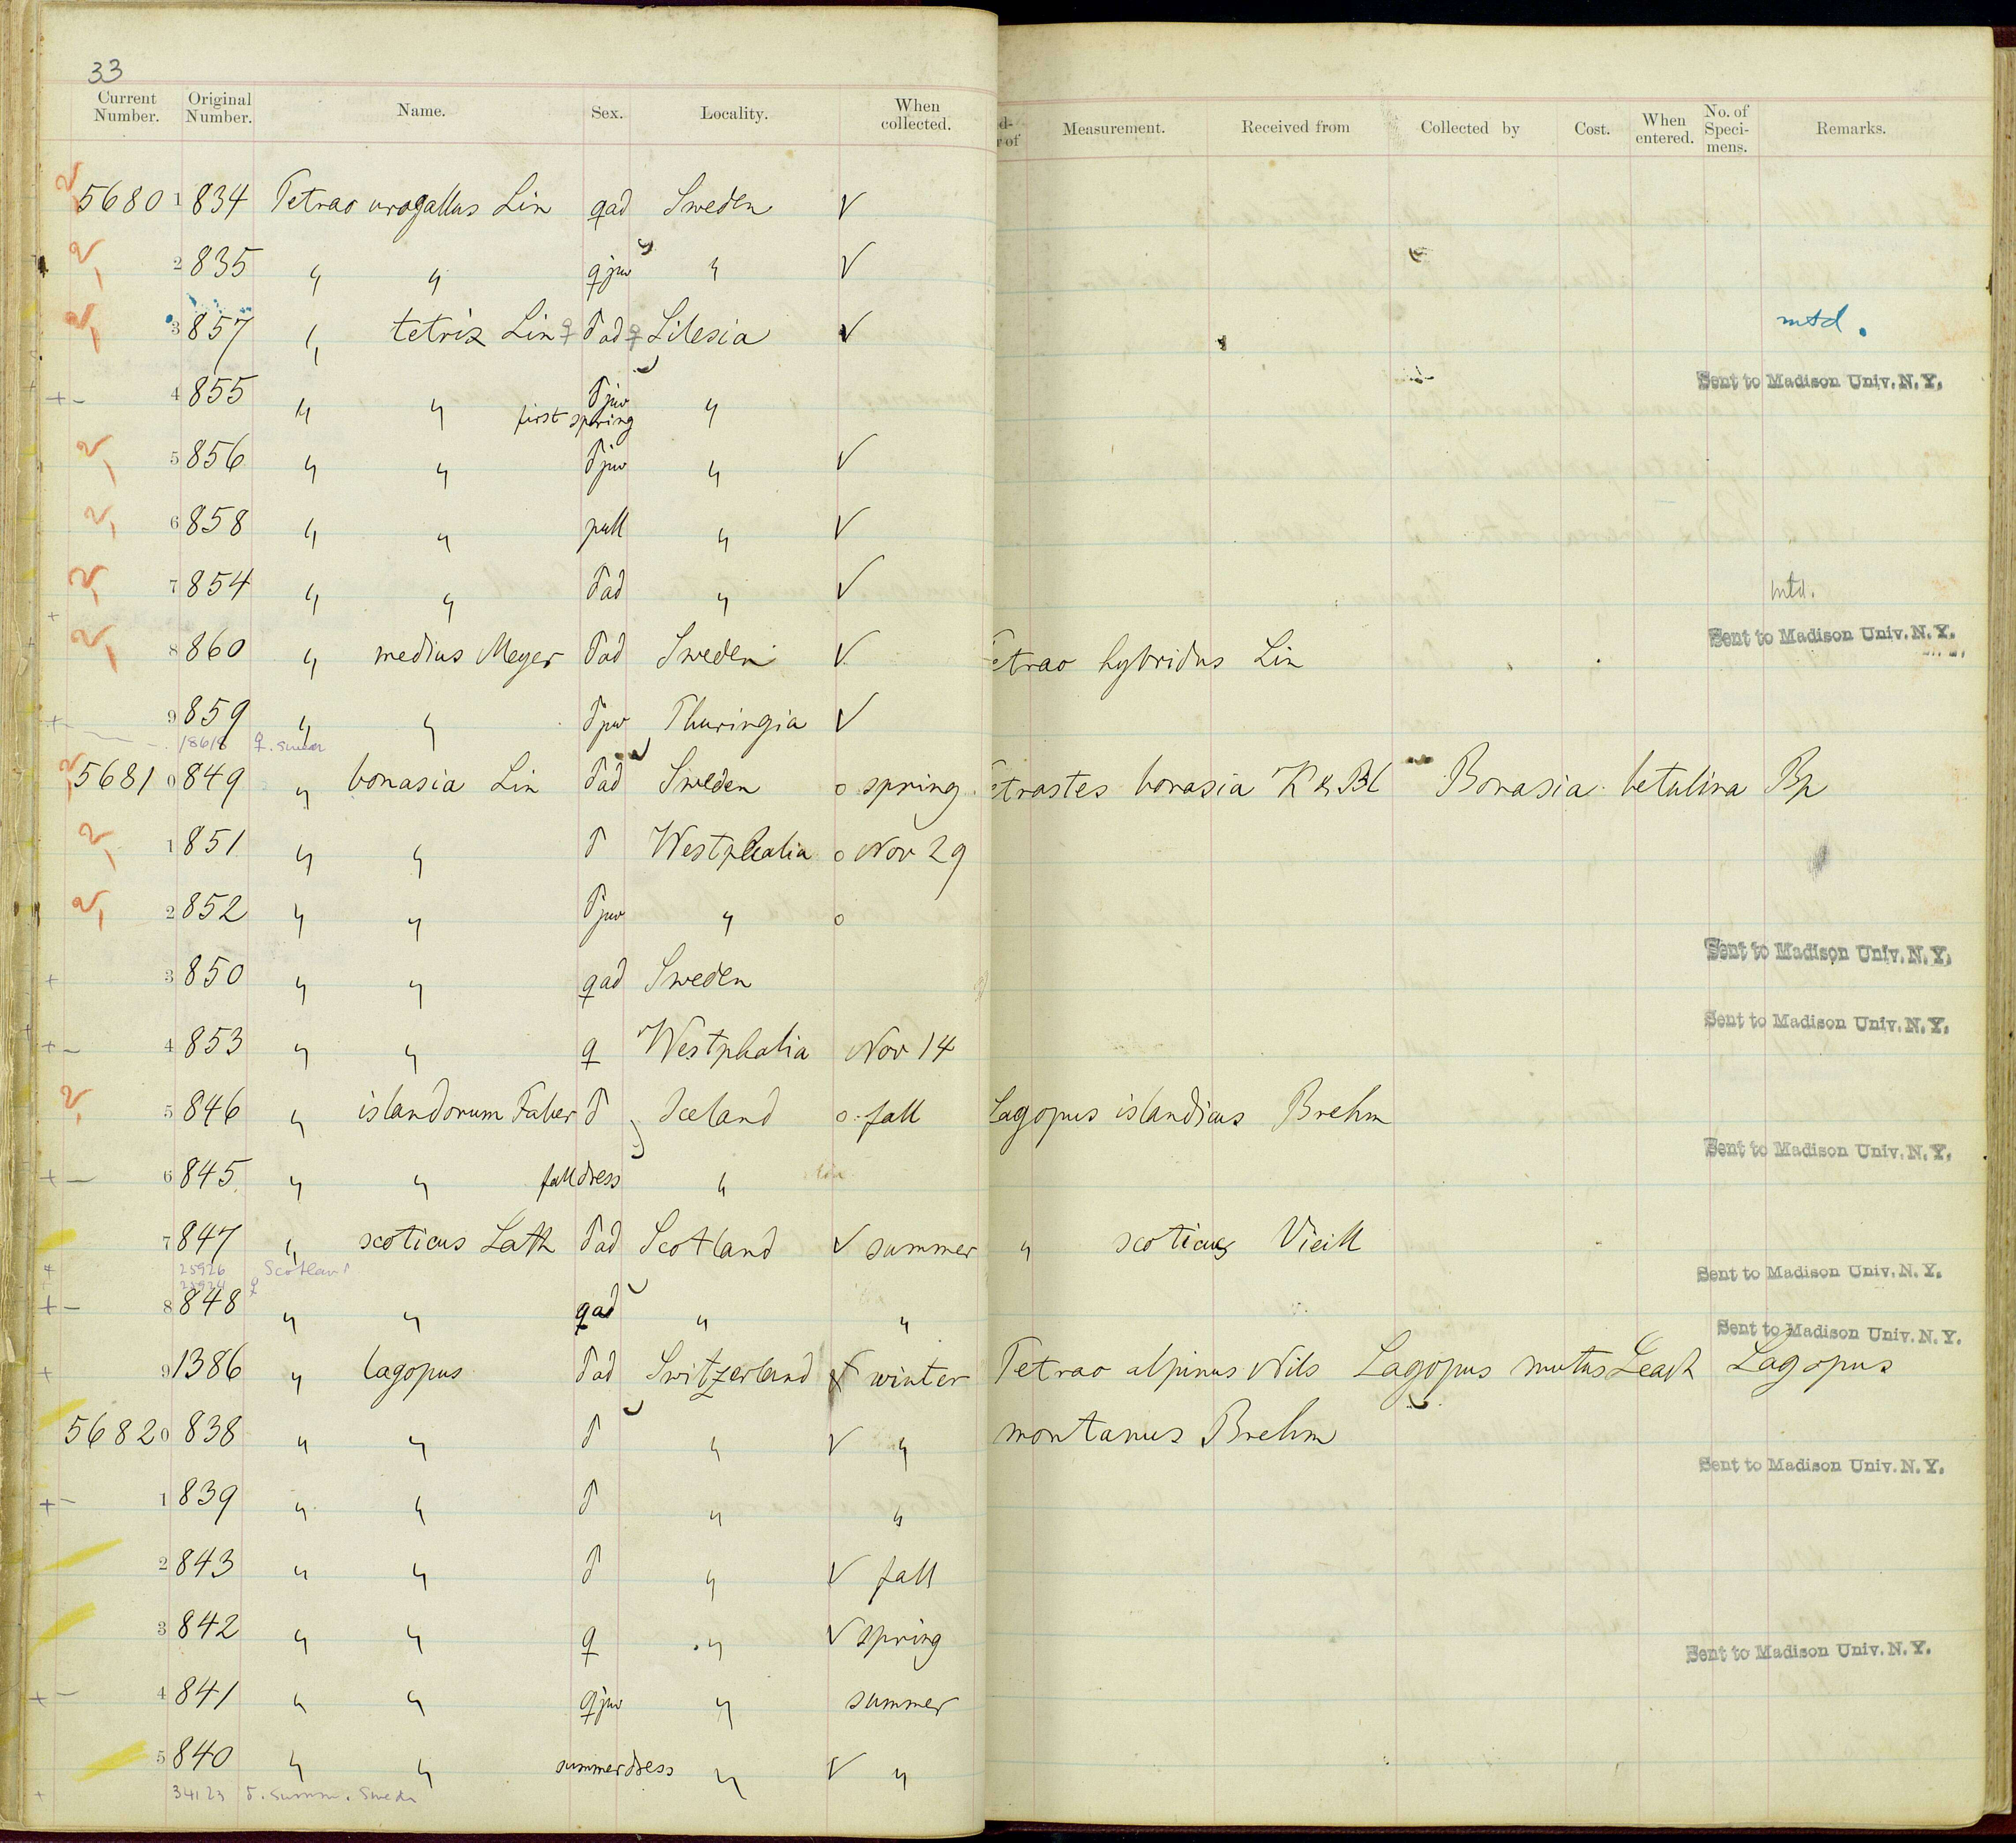 33
Current Number. Original Number. Name. Sex. Locality. When collected. Measurement. Received from Collected by Cost. When entered. No. of Specimens. Remarks.
5680 1 834 Tetrao urogallus Lin ♀ad Sweden √
2 835 〃 〃 ♀juv 〃 √
3 857 〃 tetrix Lin ♀ ♂ad ♀ Silesia √ mtd.
4 855 〃 〃 first spring ♂juv 〃 Sent to Madison Univ. N. Y.
5 856 〃 〃 ♂juv 〃 √
6 858 〃 〃 pull 〃 √
7 854 〃 〃 ♂ad 〃 √ mtd.
8 860 〃 medius Meyer ♂ad Sweden √ etrao hybridus Lin Sent to Madison Univ. N. Y.
9 859 〃 〃 ♂juv Thuringia √
18618 ♀. Sweden
5681 0 849 〃 bonasia Lin ♂ad Sweden o spring. etrastes bonasia K & Bl Bonasia betulina Bp
1 851 〃 〃 ♂ Westphalia o Nov 29
2 852 〃 〃 ♂juv 〃 o
3 850 〃 〃 ♀ad Sweden Sent to Madison Univ. N. Y.
4 853 〃 〃 ♀ Westphalia Nov 14 Sent to Madison Univ. N. Y.
5 846 〃 islandorum Faber ♂ Iceland o. fall Lagopus islandicus Brehm
6 845 〃 〃 fall dress 〃 Sent to Madison Univ. N. Y.
7 847 〃 scoticus Lath ♂ad Scotland √ summer 〃 scoticus Vieill
25926 Scotland
25924 ♀
8 848 〃 〃 ♀ad 〃 〃 Sent to Madison Univ. N. Y.
9 1386 〃 lagopus ♂ad Switzerland winter Tetrao alpinus Nils Lagopus mutus Leach Lagopus Sent to Madison Univ. N. Y.
5682 0 838 〃 〃 ♂ 〃 √ 〃 montanus Brehm
1 839 〃 〃 ♂ 〃 〃 Sent to Madison Univ. N. Y.
2 843 〃 〃 ♂ 〃 √ fall
3 842 〃 〃 ♀ 〃 √ spring
4 841 〃 〃 ♀juv 〃 summer Sent to Madison Univ. N. Y.
5 840 〃 〃 summer dress 〃 √ 〃
34123 ♂. Summ. Sweden